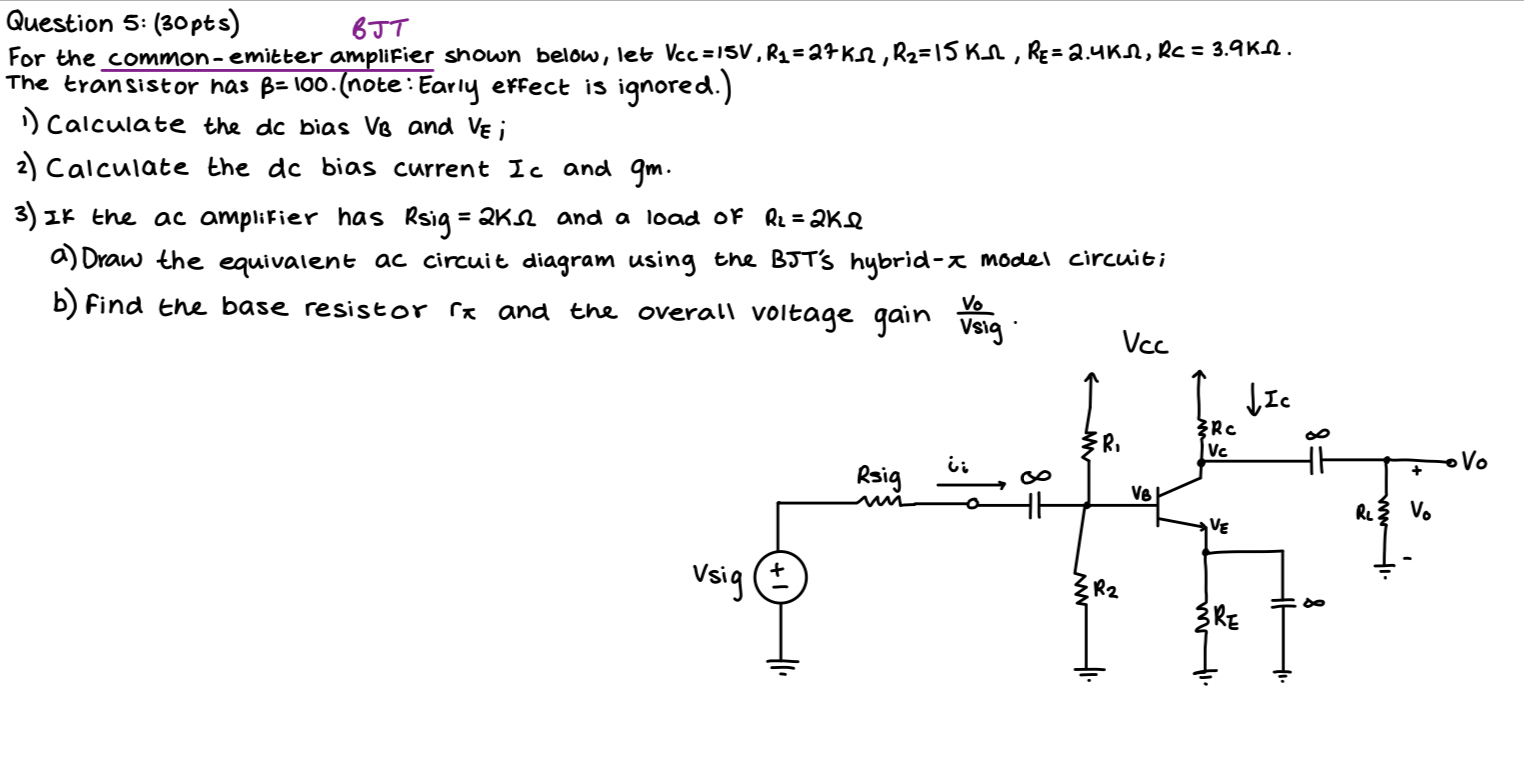 Question 5: (30pts)
BJT
For the common-emitter amplifier shown below, let Vcc=15V, R1=27KΩ, R2=15KΩ, RE=2.4KΩ, Rc=3.9KΩ.
The transistor has β=100. (note: Early effect is ignored.)
1) Calculate the dc bias VB and VE;
2) Calculate the dc bias current Ic and gm.
3) If the ac amplifier has Rsig = 2KΩ and a load of RL = 2KΩ
a) Draw the equivalent ac circuit diagram using the BJT's hybrid-π model circuit;
b) Find the base resistor rπ and the overall voltage gain Vo/Vsig.
Vcc
↓Ic
Rc
R1
Vc
∞
Vo
+
Rsig
ii
∞
VB
RL
Vo
VE
-
Vsig
+
−
R2
RE
∞